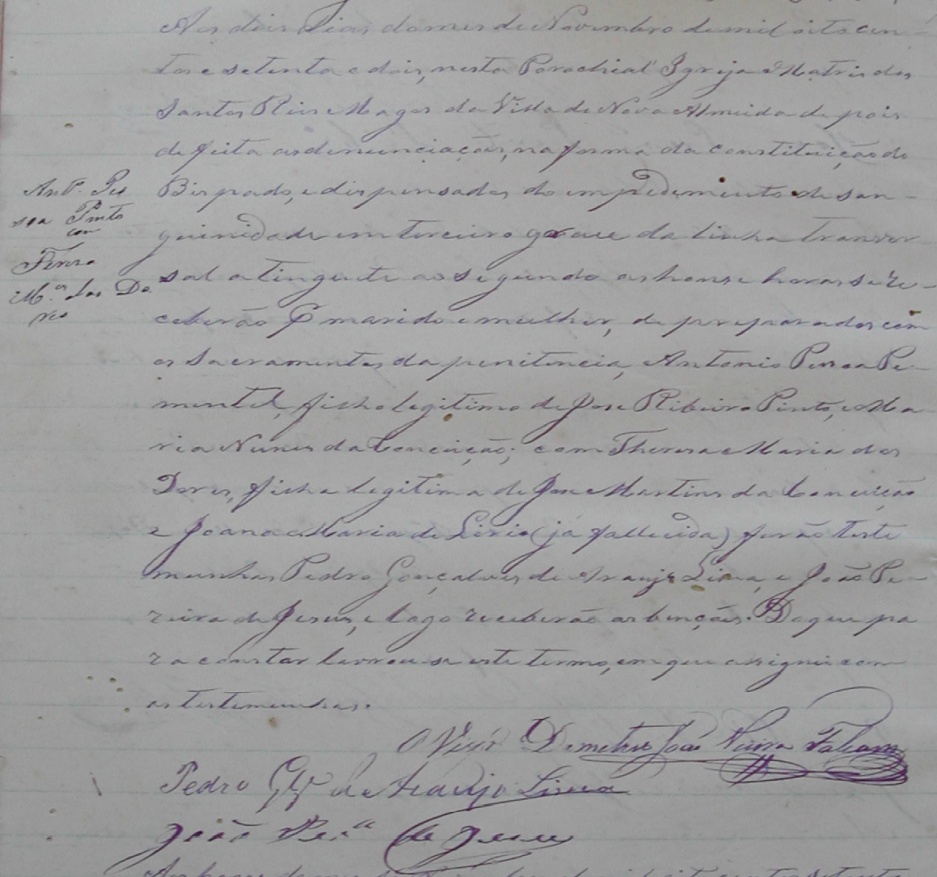 Aos dois dias do mes de Novembro de mil oito cen-
tos e setenta e dois, nesta Parochial Igreja Matris dos
Santos Reis Magos da Villa de Nova Almeida depois
de feita as denunciações, na forma da constituição do
Bispado, e dispensados do impedimento de san-
guinidade em terceiro grau da linha transver
sal atingente ao segundo as honse horas se re-
ceberão P marido e mulher, de preparados com
os Sacramentos da penitencia, Antonio Pessoa Pe-
mentel, filho legitimo de Jose Ribeiro Pinto, e Ma
ria Nunes da Conceição; com Theresa Maria das
Dores, filha legitima de Jose Martins da Conceição
e Joana Maria de Lirio (já fallecida) forão teste
munhas Pedro Gonçalves de Araujo Lima, e João Pe-
reira de Jesus, e logo receberão as benções. Do que pa
ra constar lavrou-se este termo, em que assignei com
as testemunhas.
Ant.º Pes
soa Pinto
com
Theresa
M.ª das Do
res
O Vigr.º Demetrio João
Pedro Glz de Araujo Lima
João Per.ª de Jesus